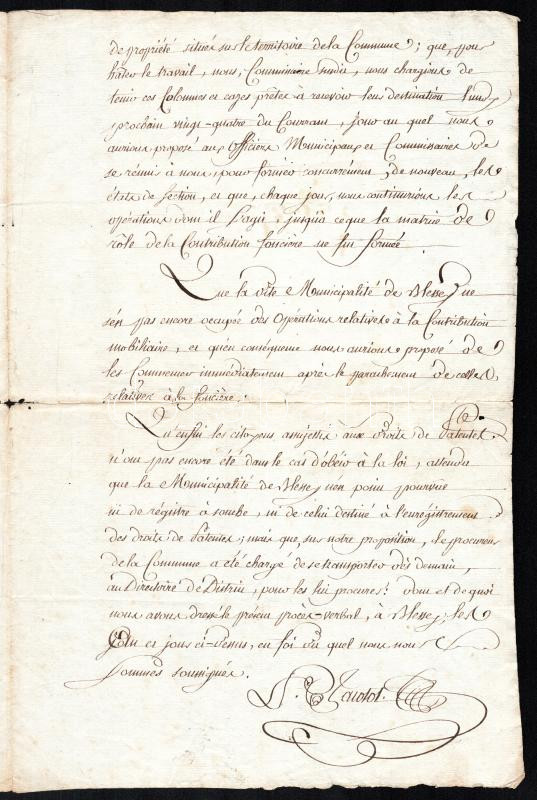 de propriété situées sur le territoire de la Commune; que, pour
hâter le travail, nous, Commissaire susdit, nous chargions de
tenir ces Colonnes et cazes prêtes à recevoir leur destination Lundy
prochain vingt-quatre du Courrant, jour au quel nous
aurions proposé aux Officiers Municipaux et Commissaires de
se réunir à nous, pour former concurremment, de nouveau, les
états de section, et que, chaque jour, nous continurions les
opérations dont il s'agit, jusqu'à ce que la matrice de
rôle de la Contribution foncière ne fut formée
Que la dite Municipalité de Blessey ne
s'est pas encore occupée des Opérations relatives à la Contribution
mobiliaire, et qu'en conséquence nous aurions proposé de
les Commencer immédiatement après le parachement de celles
relatives à la foncière.
Qu'enfin les citoyens assujettis aux droits de Patentes
n'ont pas encore été dans le cas d'obéir à la loi, attendu
que la Municipalité de Blessey n'est point pourvue
ni de régistre à souche, ni de celui destiné à l'enregistrement
des droits de Patentes; mais que, sur notre proposition, le procureur
de la Commune a été chargé de se transporter dès demain,
au Directoire de District, pour les lui procurer: dont et de quoi
nous avons dressé le présent procès-verbal, à Blessey; les
an et jours ci-dessus, en foi du quel nous nous
sommes soussignés.